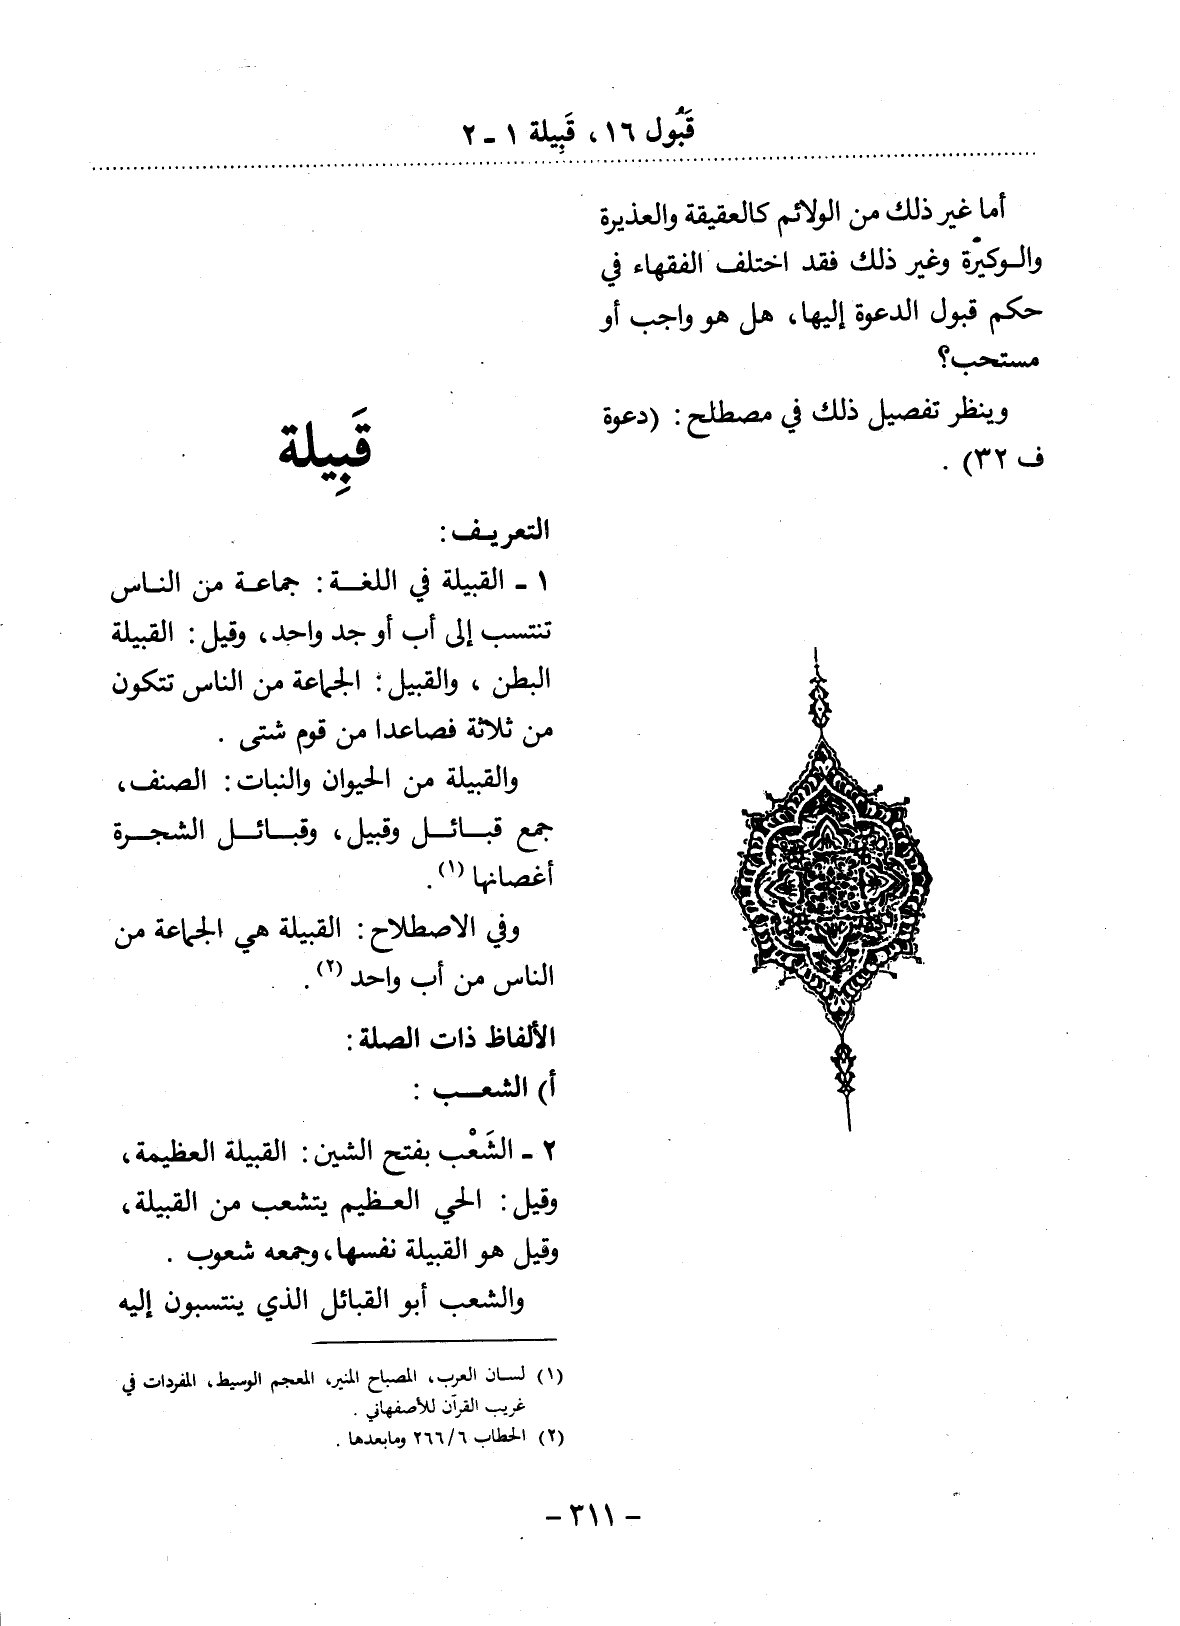 قَبُول ١٦، قَبِيلة ١ ـ ٢
أما غير ذلك من الولائم كالعقيقة والعذيرة
والـوكيرة وغير ذلك فقد اختلف الفقهاء في
حكم قبول الدعوة إليها، هل هو واجب أو
مستحب؟
وينظر تفصيل ذلك في مصطلح: (دعوة
ف ٣٢) .
قَبِيلة
التعريـف:
١ ـ القبيلة في اللغـــة: جماعـة من النـاس
تنتسب إلى أب أو جد واحد، وقيل: القبيلة
البطن ، والقبيل: الجماعة من الناس تتكون
من ثلاثة فصاعدا من قوم شتى .
والقبيلة من الحيوان والنبات: الصنف،
جمع قبـائـــل وقبيل، وقبـــائـــل الشجـــرة
أغصانها (١).
وفي الاصطلاح: القبيلة هي الجماعة من
الناس من أب واحد (٢).
الألفاظ ذات الصلة:
أ) الشعـــب :
٢ ـ الشَعْب بفتح الشين: القبيلة العظيمة،
وقيل: الحي العـظيم يتشعب من القبيلة،
وقيل هو القبيلة نفسها، وجمعه شعوب .
والشعب أبو القبائل الذي ينتسبون إليه
(١) لسـان العرب، المصباح المنير، المعجم الوسيط، المفردات في
غريب القرآن للأصفهاني .
(٢) الحطاب ٦/ ٢٦٦ ومابعدها .
- ٣١١ -